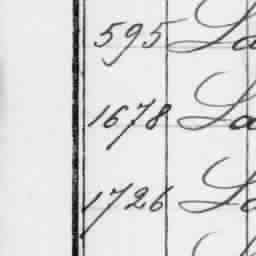 595 La
1678 La
1726 La